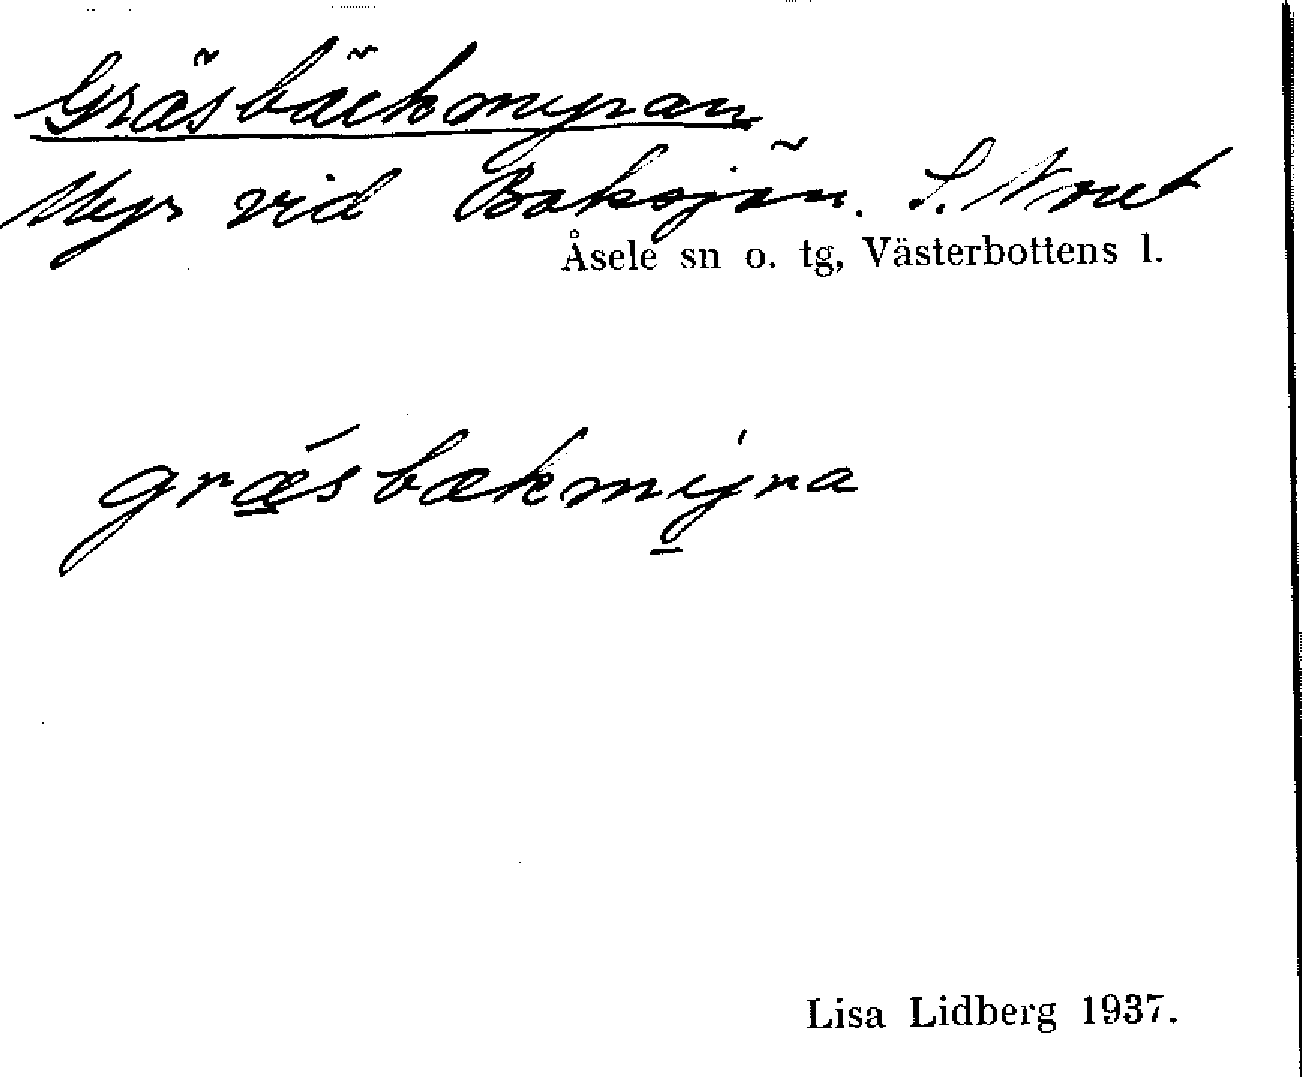 Gräsbäckmyran
Myr vid Baksjön. S. Nore​t
Åsele sn o. tg, Västerbottens l.
grǽ̲sbækmy̲̍ra
Lisa Lidberg 1937.